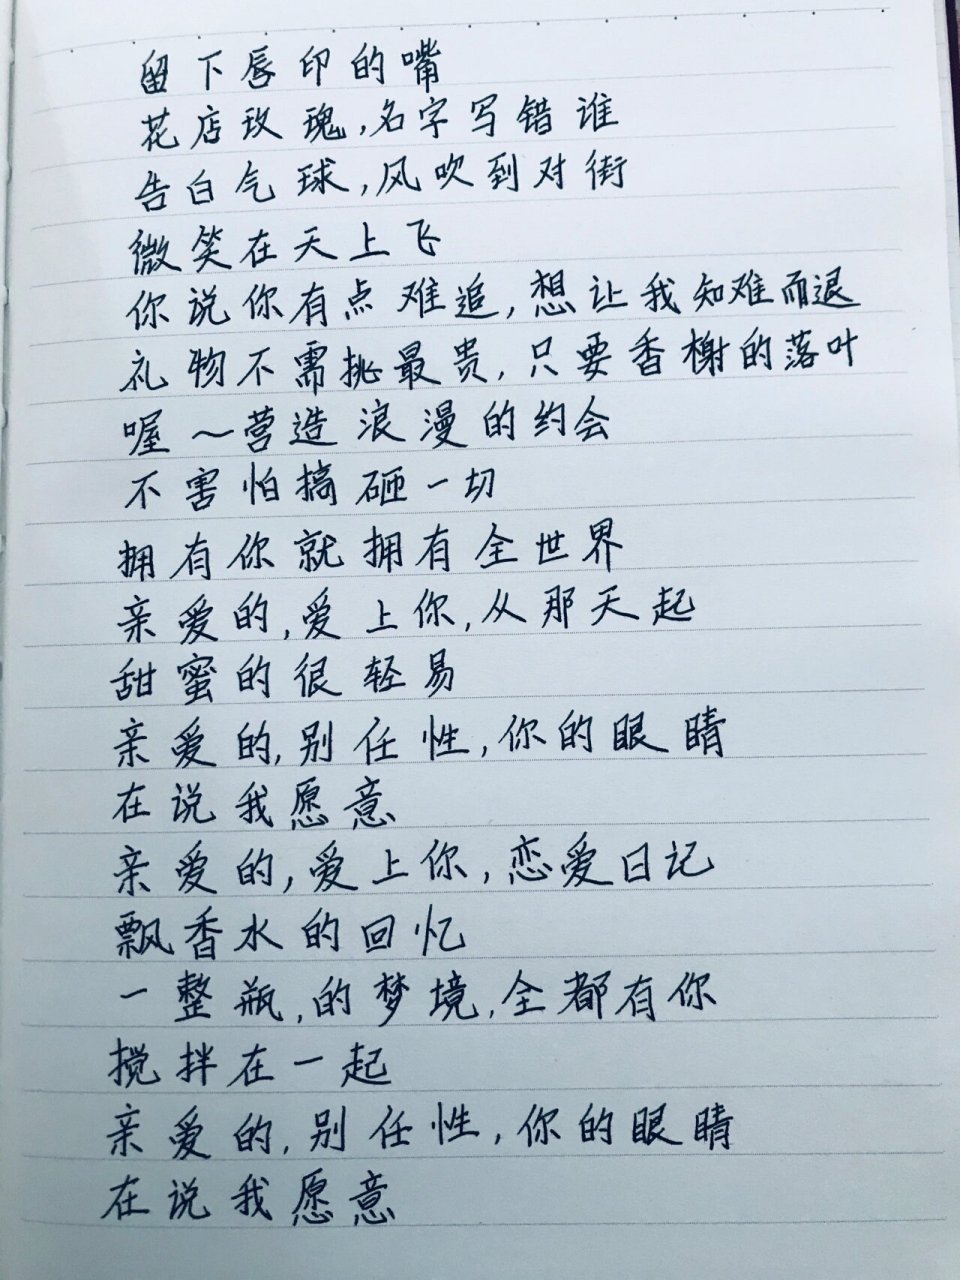 留下唇印的嘴
花店玫瑰,名字写错谁
告白气球,风吹到对街
微笑在天上飞
你说你有点难追,想让我知难而退
礼物不需挑最贵,只要香榭的落叶
喔～营造浪漫的约会
不害怕搞砸一切
拥有你就拥有全世界
亲爱的,爱上你,从那天起
甜蜜的很轻易
亲爱的,别任性,你的眼睛
在说我愿意
亲爱的,爱上你,恋爱日记
飘香水的回忆
一整瓶,的梦境,全都有你
搅拌在一起
亲爱的,别任性,你的眼睛
在说我愿意